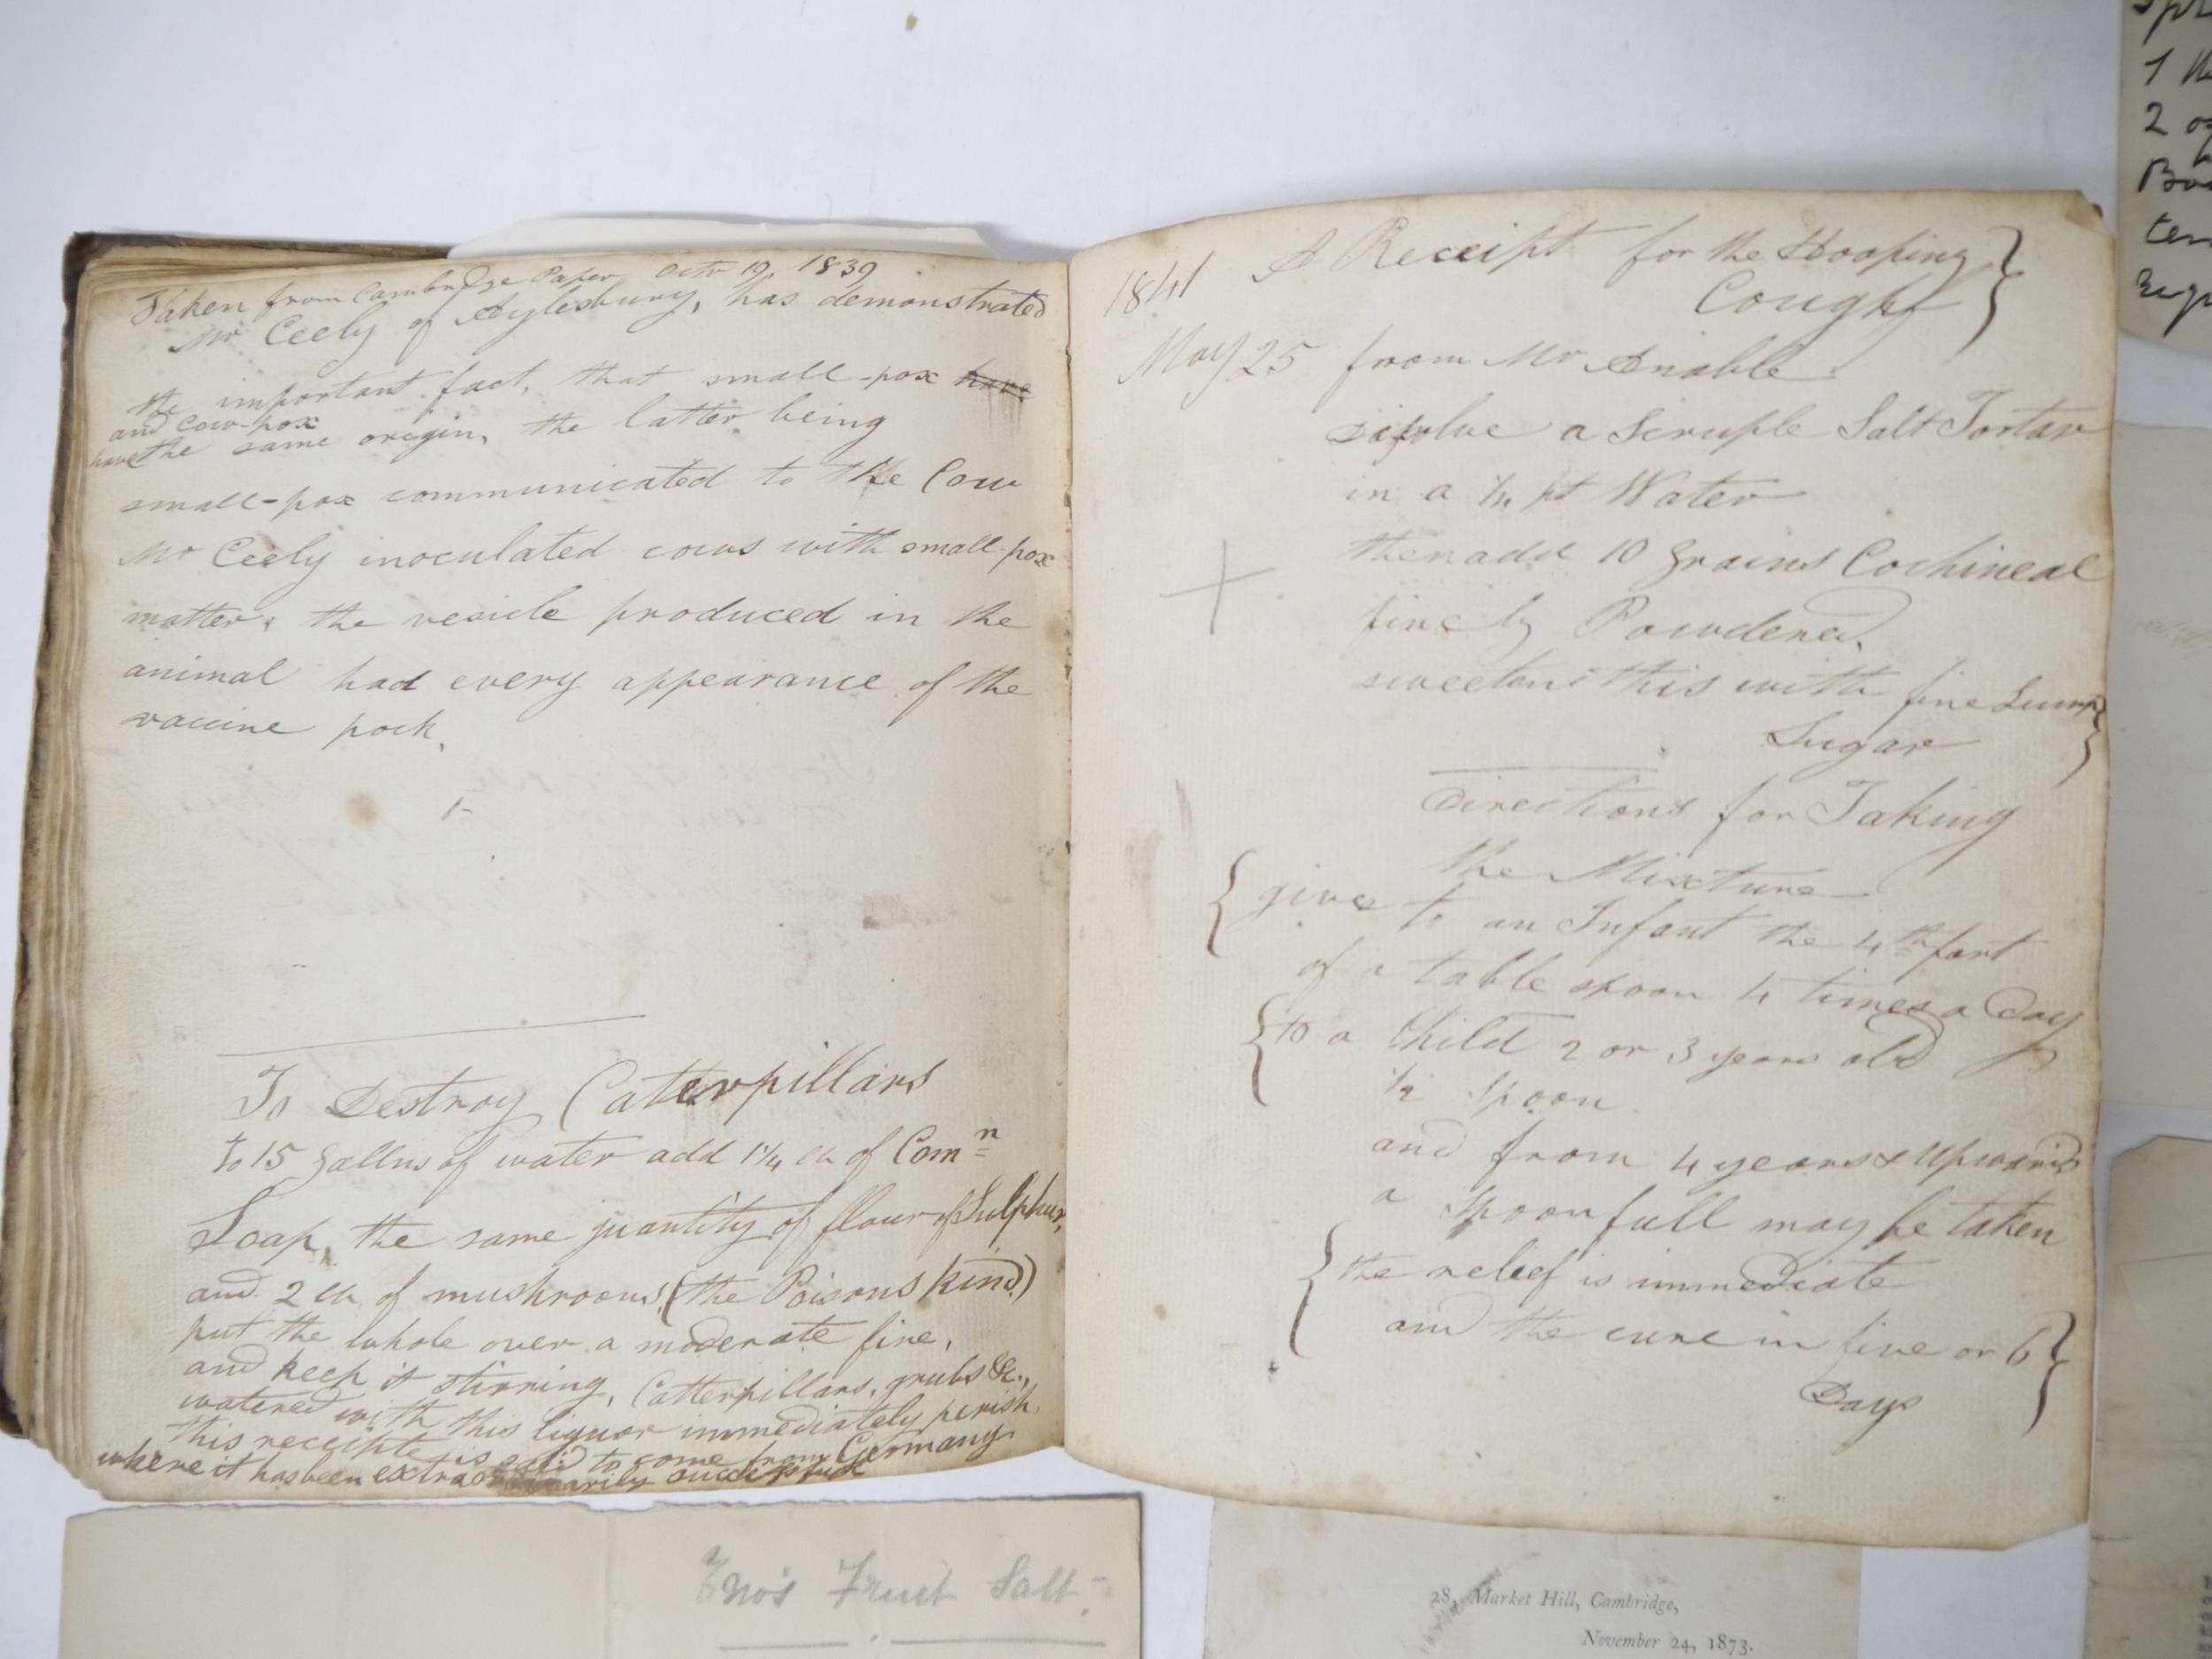 Taken from Cambridge Paper Octr 19, 1839
Mr Ceely of Aylesbury, has demonstrated
the important fact, that small-pox have
and Cow-pox
have the same origin, the latter being
small-pox communicated to the Cow
Mr Ceely inoculated cows with small-pox
matter, the vesicle produced in the
animal had every appearance of the
vaccine pock,
To Destroy Catterpillars
to 15 Gallns of water add 1¼ lb of Comn
Soap, the same quantity of flour of Sulphur,
and 2 lb of mushrooms, (the Poisons kind)
put the whole over a moderate fire,
and keep it stirring, Catterpillars, grubs &c.,
watered with this liquor immediately perish,
this receipte is said to come from Germany
where it has been extraordinarily successful
1841 A Receipt for the Hooping
Cough
May 25 from Mr Anable
disolve a Scruple Salt Tartar
in a ¼ pt Water
then add 10 Grains Cochineal
finely Powdered,
sweeten this with fine Lump
Sugar
Directions for Taking
the Mixture
give to an Infant the 4th part
of a table spoon 4 times a Day
to a Child 2 or 3 years old
½ spoon
and from 4 years & Upwards
a spoonfull may be taken
the relief is immediate
and the cure in five or 6
Days
Eno's Fruit Salt.
28, Market Hill, Cambridge,
November 24, 1873.
1
2